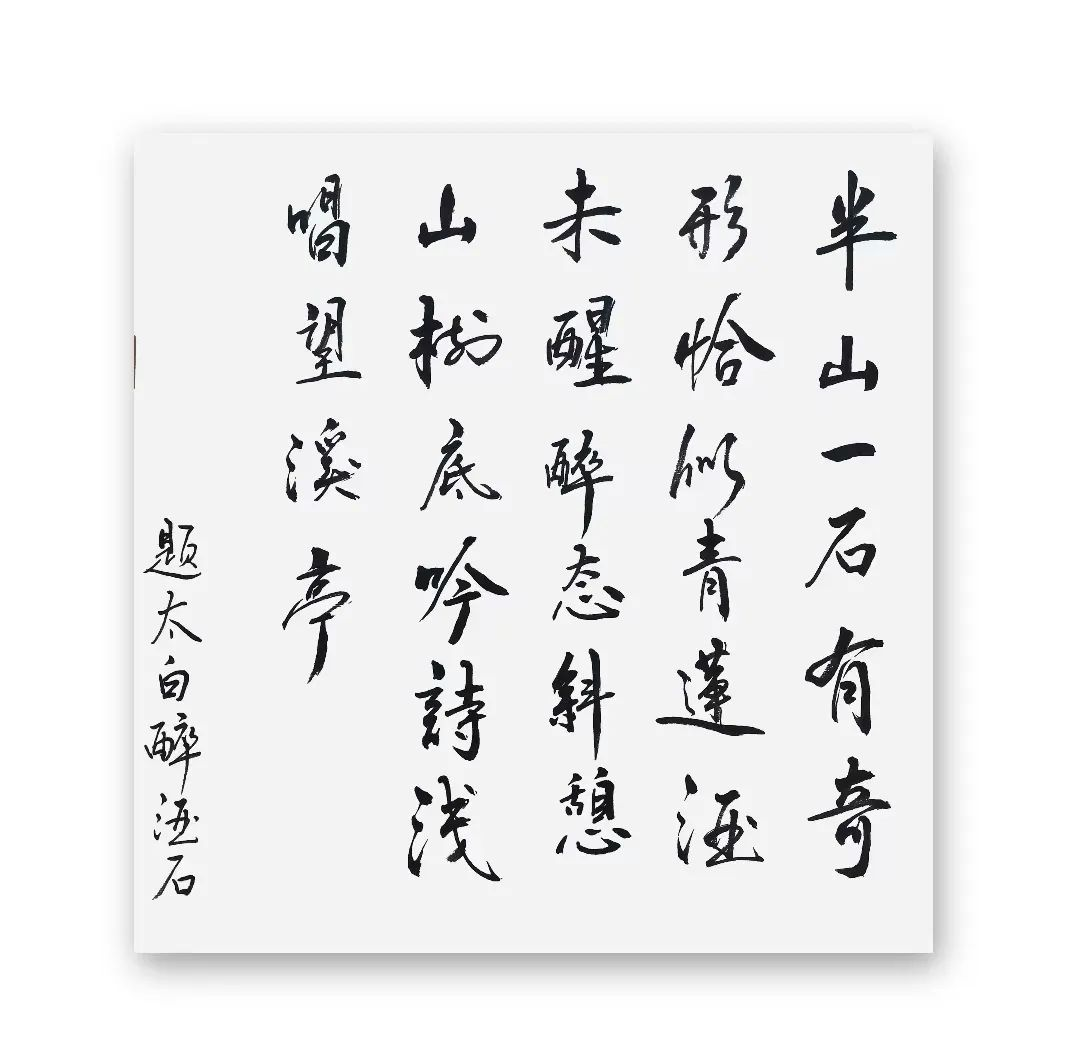 半山一石有奇
形恰似青蓮酒
未醒醉态斜憩
山樹底吟詩浅
唱望溪亭
题太白醉酒石